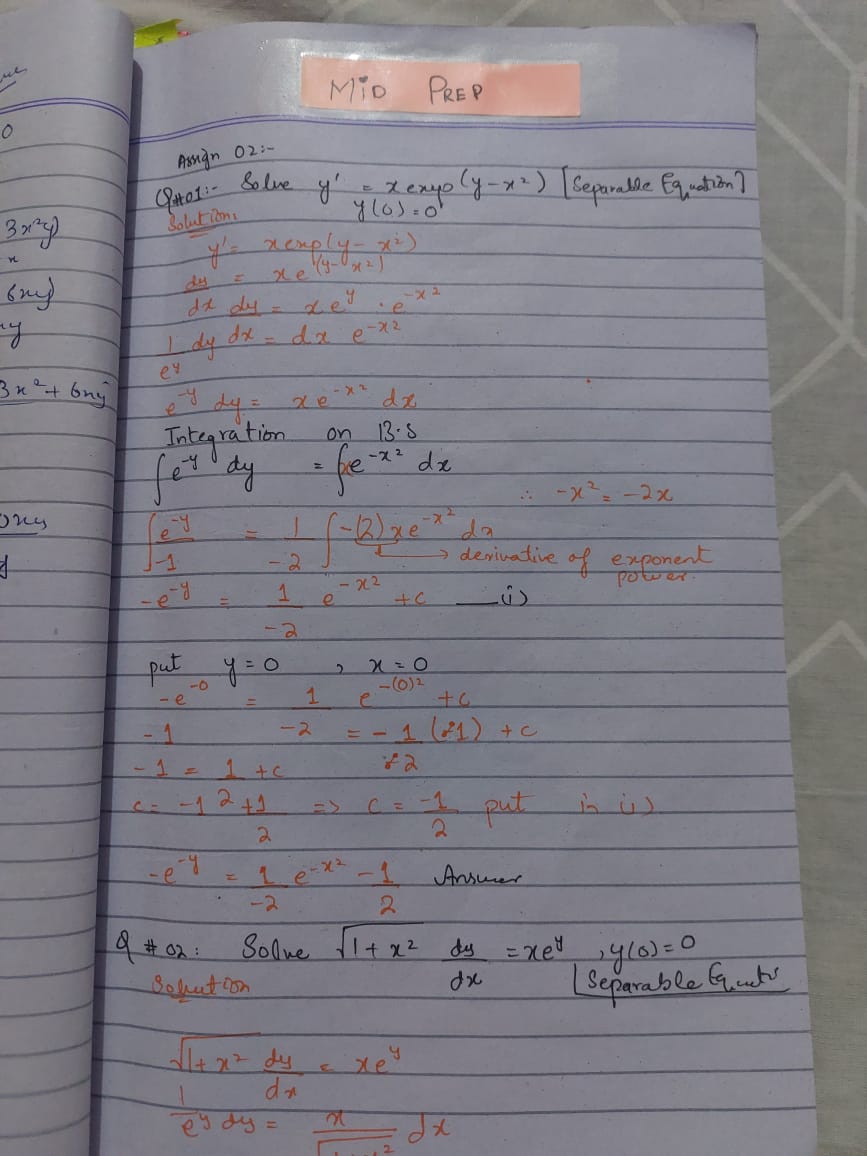 MiD PREP
Assign 02:-
Q#01:- Solve y' = x exp(y-x²) [Separable Equation]
y(0)=0
Solution:
y' = x exp(y-x²)
dy/dx = x e^(y-x²)
dy = x e^y · e^-x²
dx
1/e^y dy dx = dx e^-x²
e^-y dy = x e^-x² dx
Integration on B.S
∫e^-y dy = ∫xe^-x² dx
∴ -x² = -2x
∫e^-y/-1 = 1/-2 ∫-(2)xe^-x² dx
→ derivative of exponent power.
-e^-y = 1/-2 e^-x² +c —i)
put y=0 , x=0
-e^-0 = 1/-2 e^-(0)² +c
-1 = -1/2 (1) +c
-1 = 1/2 +c
c = -1 +1/2 => c = -1/2 put in i)
-e^-y = 1/-2 e^-x² -1/2 Answer
Q#02: Solve √1+x² dy/dx = xe^y , y(0)=0
[Separable
Solution
√1+x² dy/dx = xe^y
1/e^y dy = x/√ dx
3x²y)
6ny)
3x²+6ny